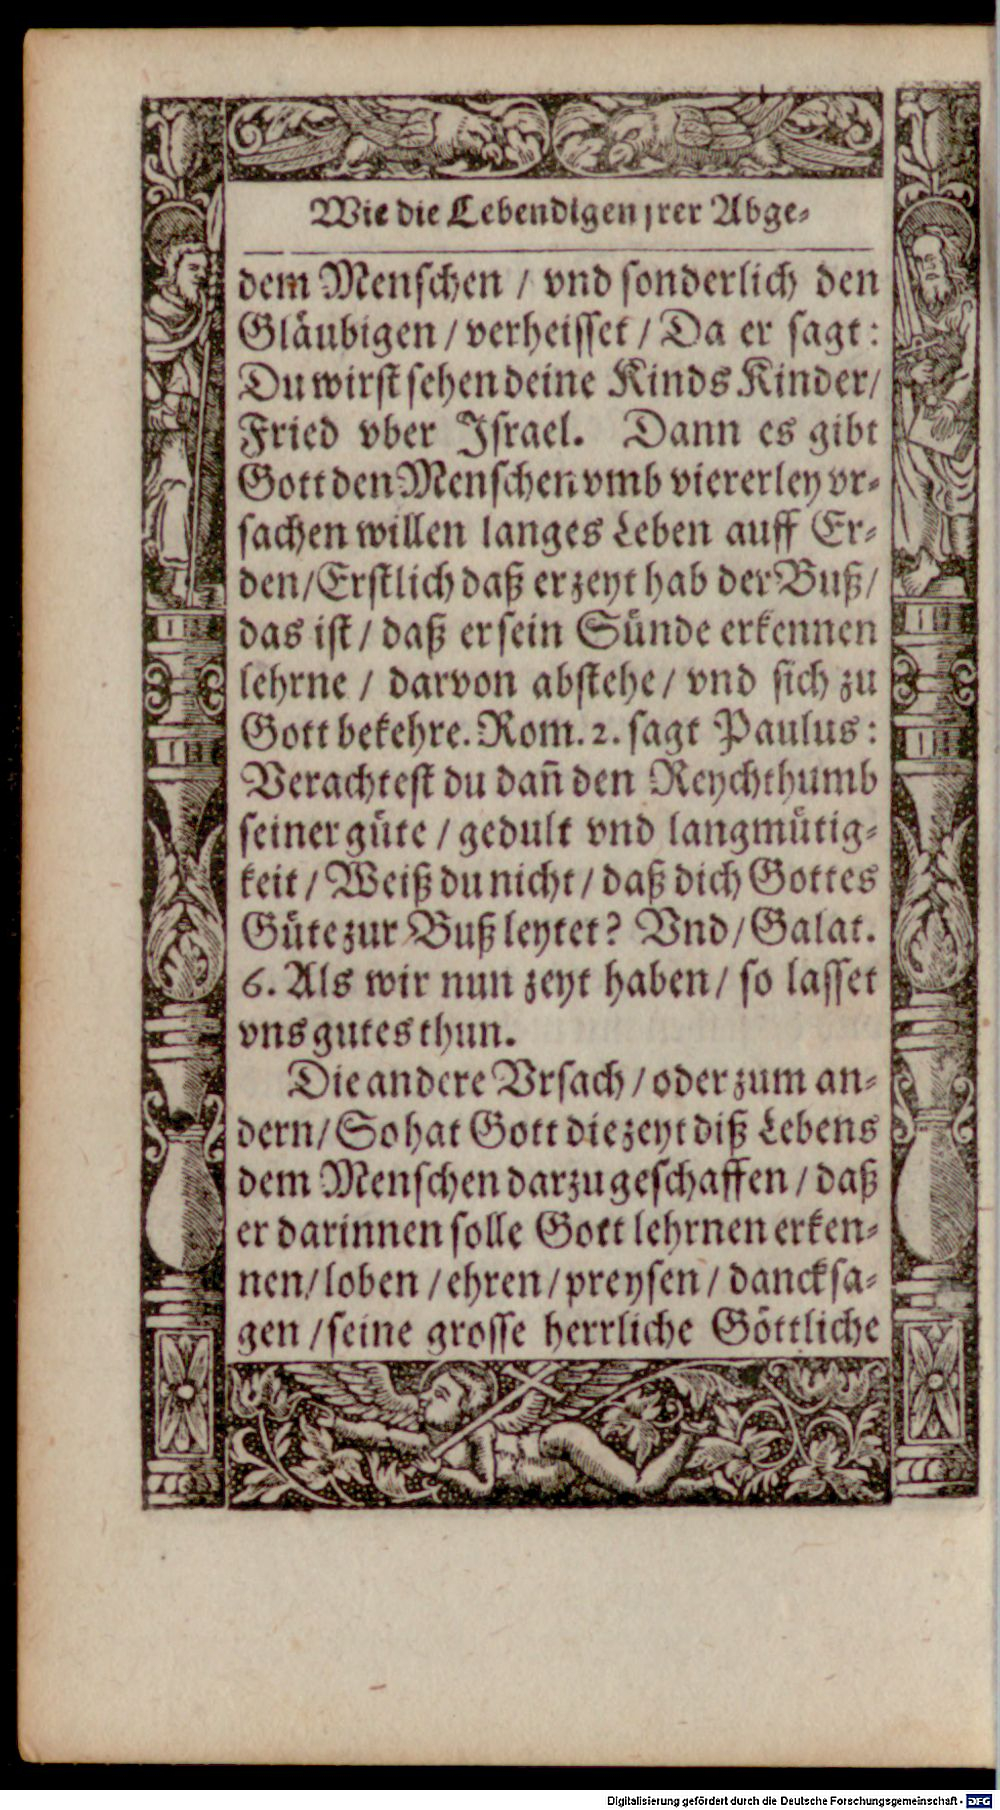 Wie die Lebendigen jrer Abge⸗
dem Menſchen / vnd ſonderlich den
Gläubigen / verheiſſet / Da er ſagt :
Du wirſt ſehen deine Kinds Kinder /
Fried vber Iſrael. Dann es gibt
Gott den Menſchen vmb viererley vr⸗
ſachen willen langes Leben auff Er⸗
den / Erſtlich daß er zeyt hab der Buß /
das iſt / daß er ſein Sünde erkennen
lehrne / darvon abſtehe / vnd ſich zu
Gott bekehre. Rom. 2. ſagt Paulus :
Verachteſt du dañ den Reychthumb
ſeiner güte / gedult vnd langmütig⸗
keit / Weiß du nicht / daß dich Gottes
Güte zur Buß leytet? Vnd / Galat.
6. Als wir nun zeyt haben / ſo laſſet
vns gutes thun.
Die andere Vrſach / oder zum an⸗
dern / So hat Gott die zeyt diß Lebens
dem Menſchen darzu geſchaffen / daß
er darinnen ſolle Gott lehrnen erken⸗
nen / loben / ehren / preyſen / danckſa⸗
gen / ſeine groſſe herrliche Göttliche
Digitalisierung gefördert durch die Deutsche Forschungsgemeinschaft - DFG